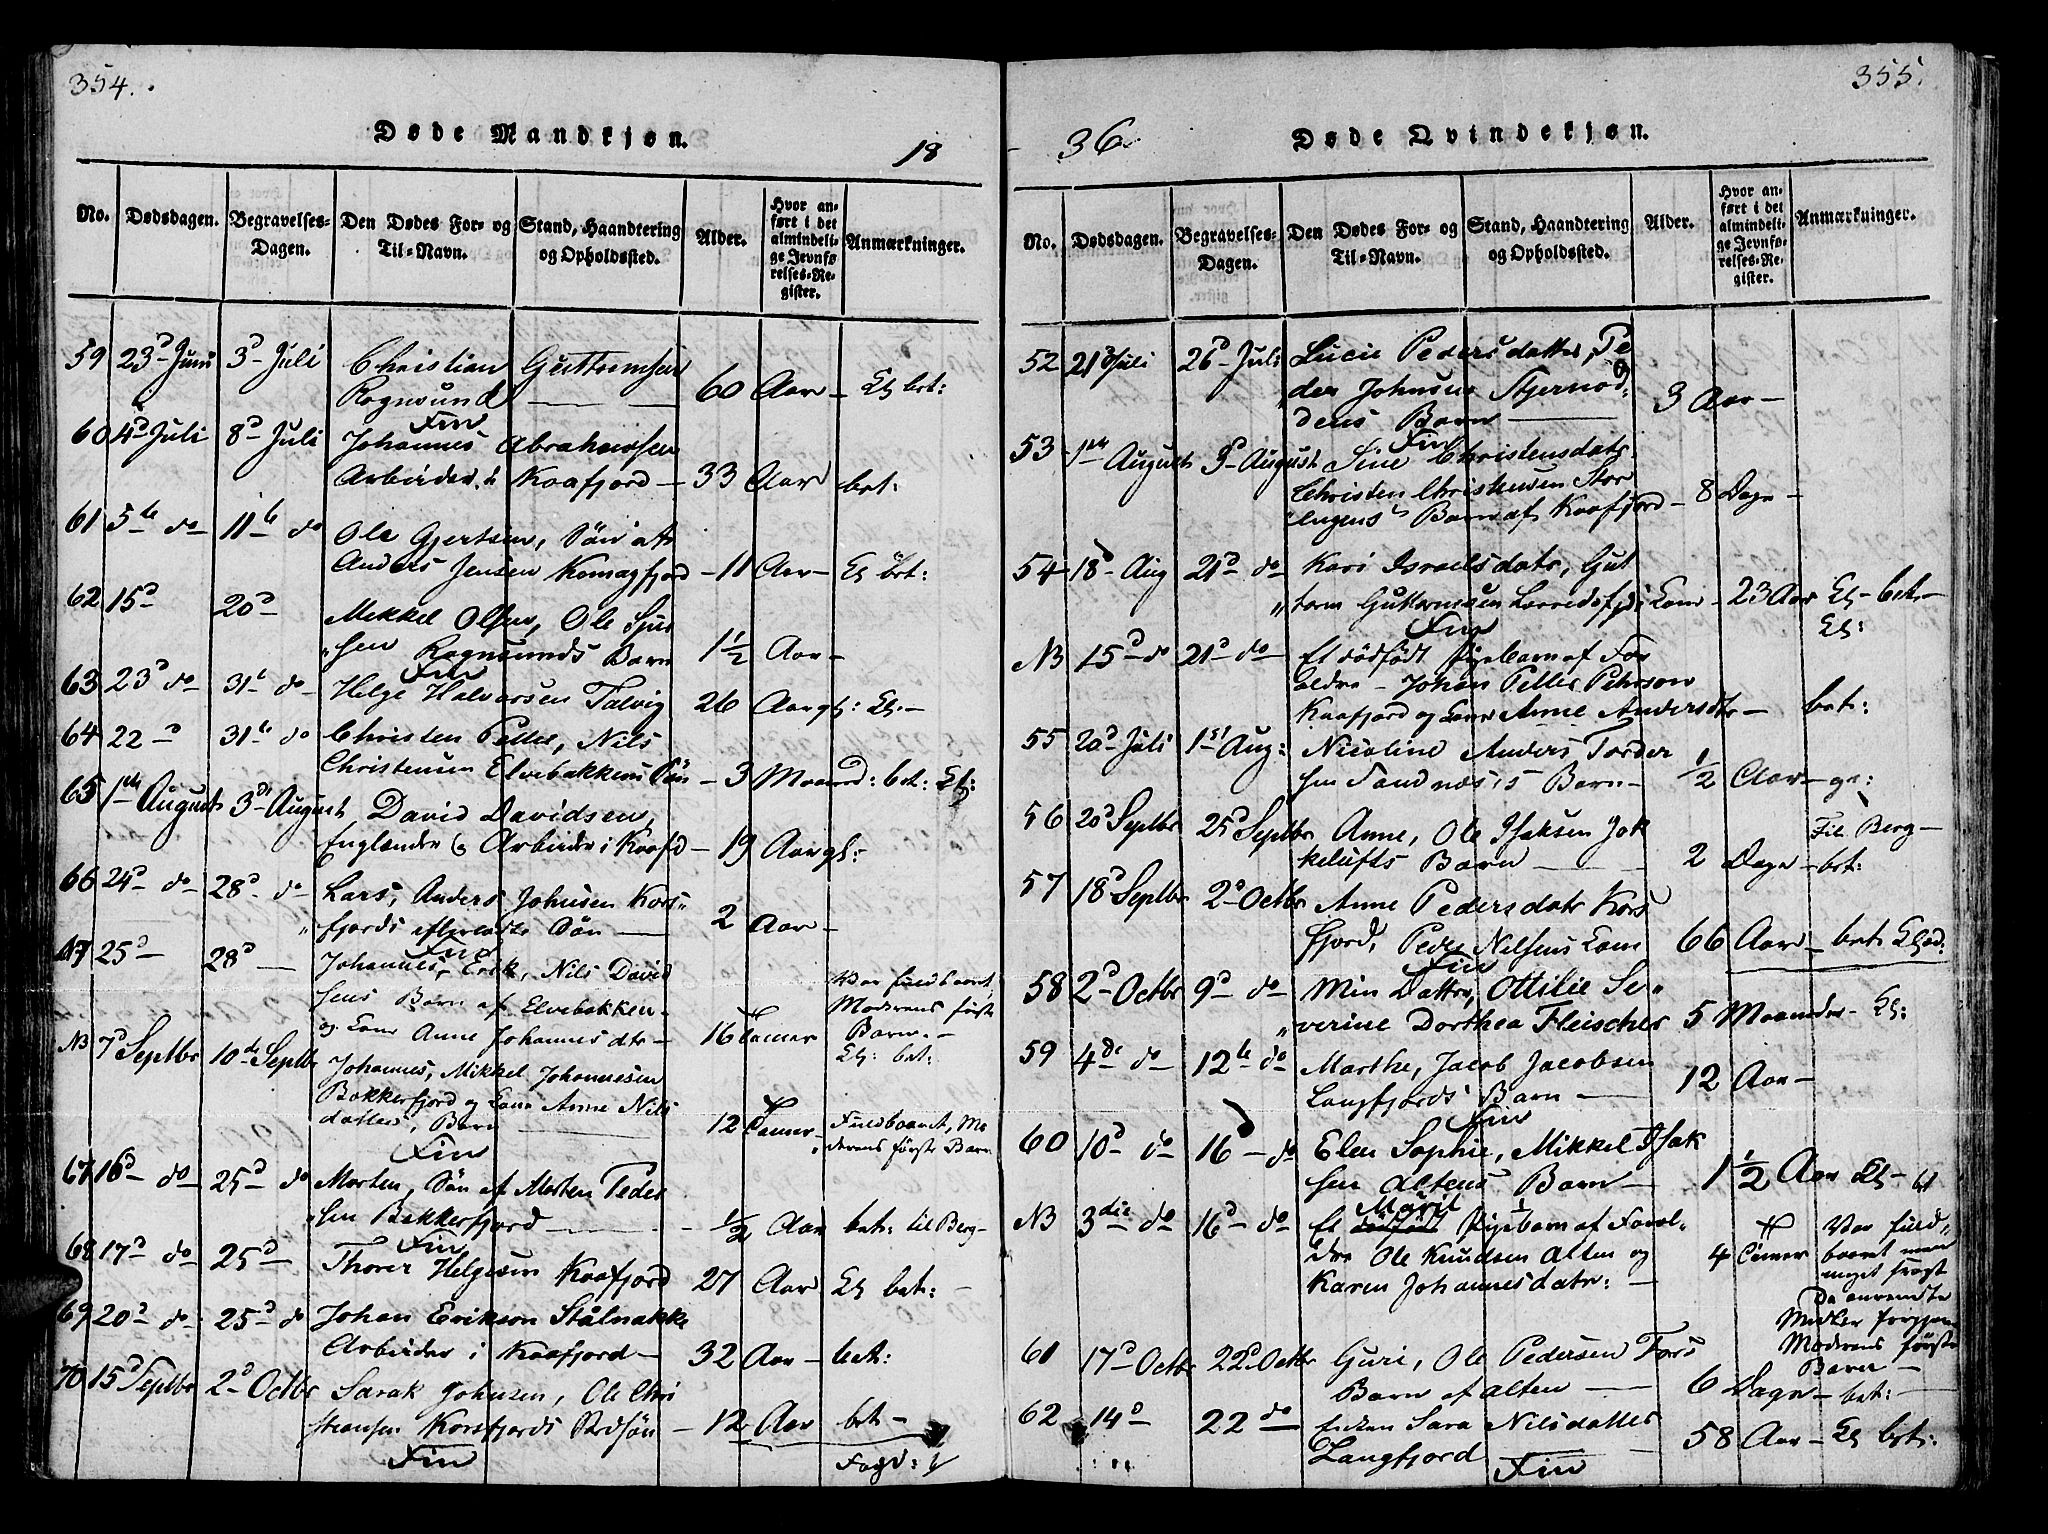 354.
Døde Mandkjøn.
18
No.
Dødsdagen.
Begravelses-
Dagen.
Den Dødes For- og
Til-Navn.
Stand, Haandtering
og Opholdssted.
Alder.
Hvor an-
ført i det
almindeli-
ge Jevnfø-
relses-Re-
gister.
Anmærkninger.
59 23d Juni 3d Juli Christian Guttormsen
Rognsund 60 Aar
Fin
60 4d Juli 8d Juli Johannes Abrahamsen
Arbeider i Kaafjord 33 Aar bet:
61 5te do 11te do Ole Gjertsen, Søn af
Anders Jensen Komagfjord 11 Aar
62 15d 20d Mikkel Olsen, Ole
sen Rognsunds Barn 1½ Aar
Fin
63 23d do 31te do Helge Halvorsen Talvig 26 Aar
64 22d 31te do Christen Petter, Nils
Christensen Elvebakkens Søn 3 Maaned: bet:
65 1ste August 3die August David Davidsen,
Englænder og Arbeider i Kaafd 19 Aar
66 24d do 28d do Lars, Anders Johnsen Kors-
fjords Søn 2 Aar
Fin
25d 28d Johannes, Erik, Nils David
sens Barn af Elvebakken
og Kone Anne Johannesdtr 16 Timer Var fuldbaaret,
Moderens første
Barn.
bet:
NB 7d Septbr 10de Septbr Johannes, Mikkel Johannesen
Bekkerfjord og Kone Anne Nils
datters Barn 12 Timer Fuldbaaret, Mo
derens første Barn
Fin
67 16d do 25d do Morten, Søn af Morten Peder
sen Bekkerfjord ½ Aar bet: til Berg
Fin
68 17d do 25d Thorer Helgesen Kaafjord 27 Aar bet:
69 20d do 25d do Johan Erikson Stålnakke
Arbeider i Kaafjord 32 Aar bet:
70 15d Septbr 2d Octbr Sarak Johnsen, Ole Chri
stiansen Korsfjords 12 Aar bet
Fin
355.
36
Døde Qvindekjøn.
No.
Dødsdagen.
Begravelses-
Dagen.
Den Dødes For- og
Til-Navn.
Stand, Haandtering
og Opholdssted.
Alder.
Hvor an-
ført i det
almindeli-
ge Jevnfø-
relses-Re-
gister.
Anmærkninger.
52 21d Juli 26d Juli Lucie Pedersdatter, Pe
der Johnsens Stjernod-
dens Barn 3 Aar
Fin
53 1ste August August Sine Christensdatr.
Christen Christensen Stor
engens Barn af Kaafjord 8 Dage
54 18d Aug 21d do Kari Israelsdatr, Gut
torm Guttormsen Kone 23 Aar bet
Fin
NB 15d do 21d do Et dødfødt Pigebarn af For
ældre Johan Petter Pehrson
Kaafjord og Kone Anne Andersdtr bet:
55 20d Juli 1st Aug: Nicoline Anders Torder
sen Sandnæs's Barn ½ Aar
56 20d Septbr 25d Septbr Anne, Ole Isaksen Jok
kelufts Barn 2 Dage
Fil. Berg
bet:
57 18d Septbr 2d Octbr Anne Pedersdatr Kors
fjord, Peder Nilsens Kone 66 Aar bet
Fin
58 2d Octbr 9d do Min Datter, Ottilie Se-
verine Dorthea Fleischer 5 Maaneder
59 4de do 12te do Marthe, Jacob Jacobsen
Langfjords Barn 12 Aar
Fin
60 10d do 16 do Elen Sophie, Mikkel Isak
sen Altens Barn 1½ Aar
Marit
NB 3die do 16d do Et dødfødt Pigebarn af Foræl-
dre Ole Knudsen Alten og
Karen Johannesdatr: 4 Timer Var fuld
baaret men
meget svagt
Da anvendte
Midler
Moderens første
Barn
61 17d Octbr 22d Octbr Guri, Ole Pedersen Fors
Barn af Alten 6 Dage bet:
62 14d 22 do Enken Sara Nilsdatter
Langfjord 58 Aar bet:
Fin